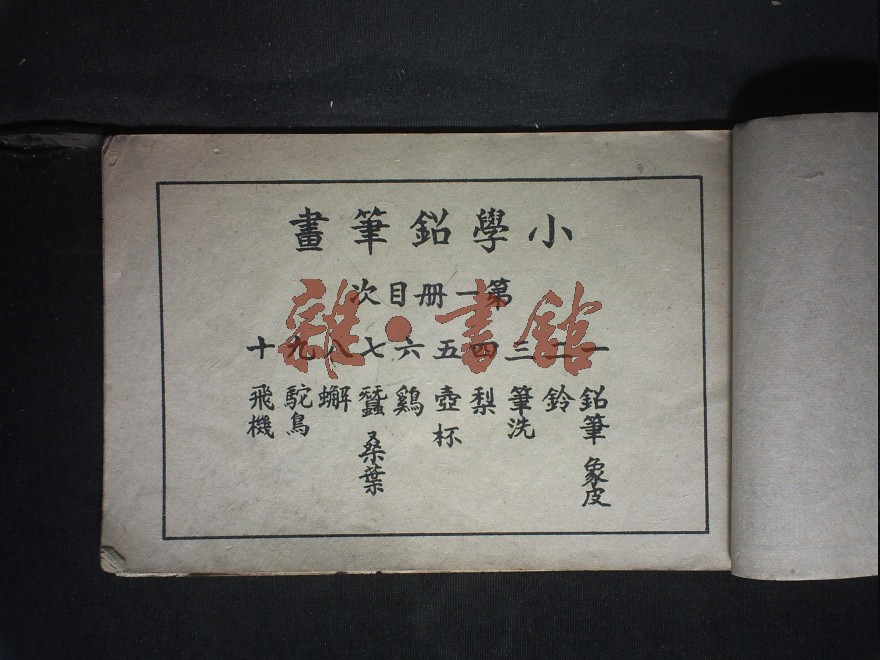 小學鉛筆畫
第一冊目次
一 鉛筆 象皮
二 鈴
三 筆洗
四 梨
五 壺 杯
六 鷄
七 蠶 桑葉
八 蠏
九 駝鳥
十 飛機
雜·書館